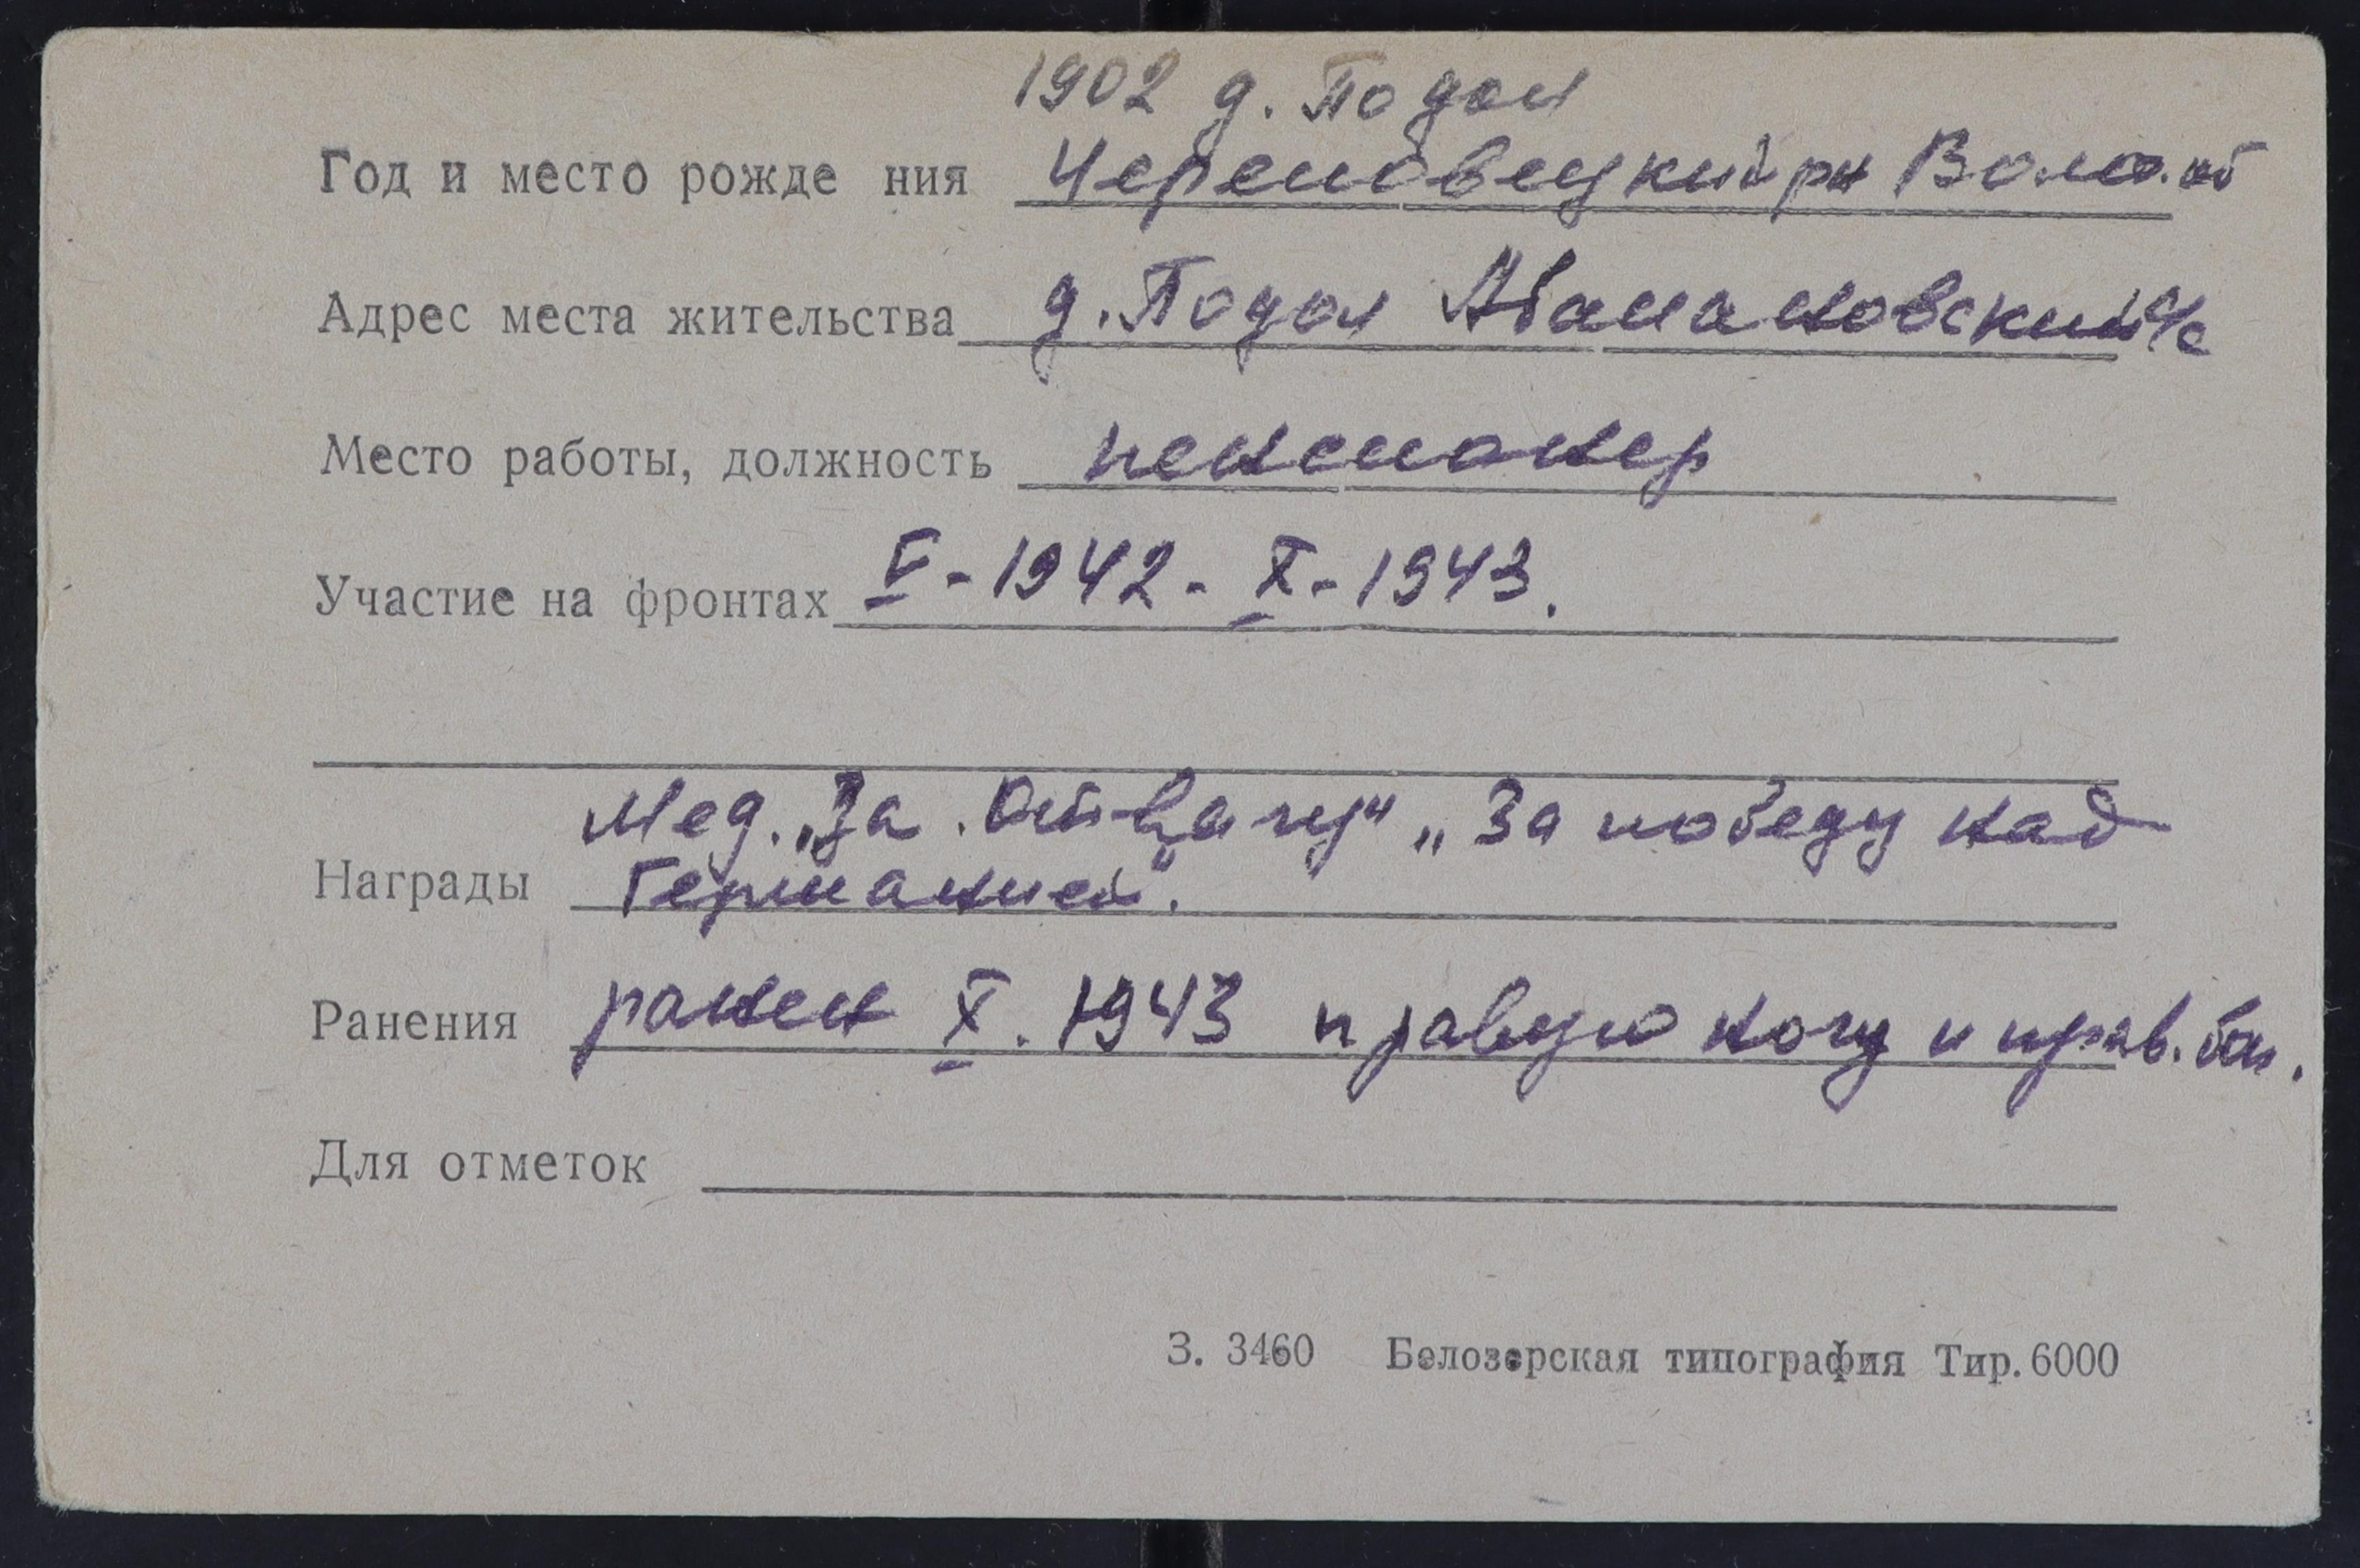 1902 д. Подол
Год и место рожде ния Череповецкий рн Волог. об
Адрес места жительства д. Подол Абакановский с/с
Место работы, должность пенсионер
Участие на фронтах V-1942 - X-1943.
Мед. „За Отвагу" „За победу над
Награды Германией".
Ранения ранен X. 1943 правую ногу и прав. бок.
Для отметок
З. 3460 Белозерская типография Тир. 6000